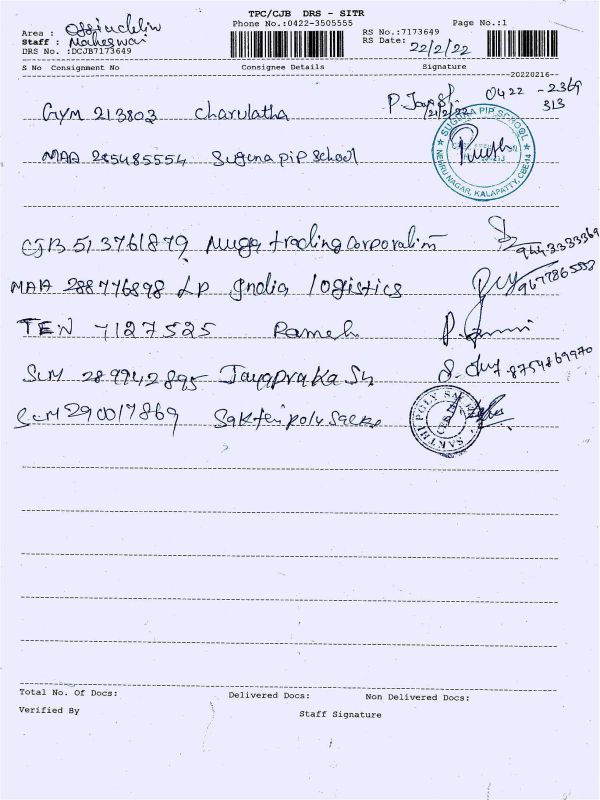 TPC/CJB DRS - SITR
Phone No.:0422-3505555
Page No.:1
Area :
Staff : Maheswari
DRS No. :DCJB7173649
RS No.:7173649
RS Date: 22/2/22
S No Consignment No Consignee Details Signature
20220216
GYM 213803 Charulatha
0422 - 2369
313
MAA 285485554 Suguna pip School
SUGUNA PIP SCHOOL
NEHRU NAGAR, KALAPATTY, CBE-14
CJB 513761879 Muga trading Corporation
MAA 288776898 LP India logistics
TEN 7127525 Ramesh
SLM 289942895 Jayaprakash
8754869970
SLM 290017869 Sakthi poly Sacks
SAKTHI POLY SACKS
Total No. Of Docs: Delivered Docs: Non Delivered Docs:
Verified By Staff Signature